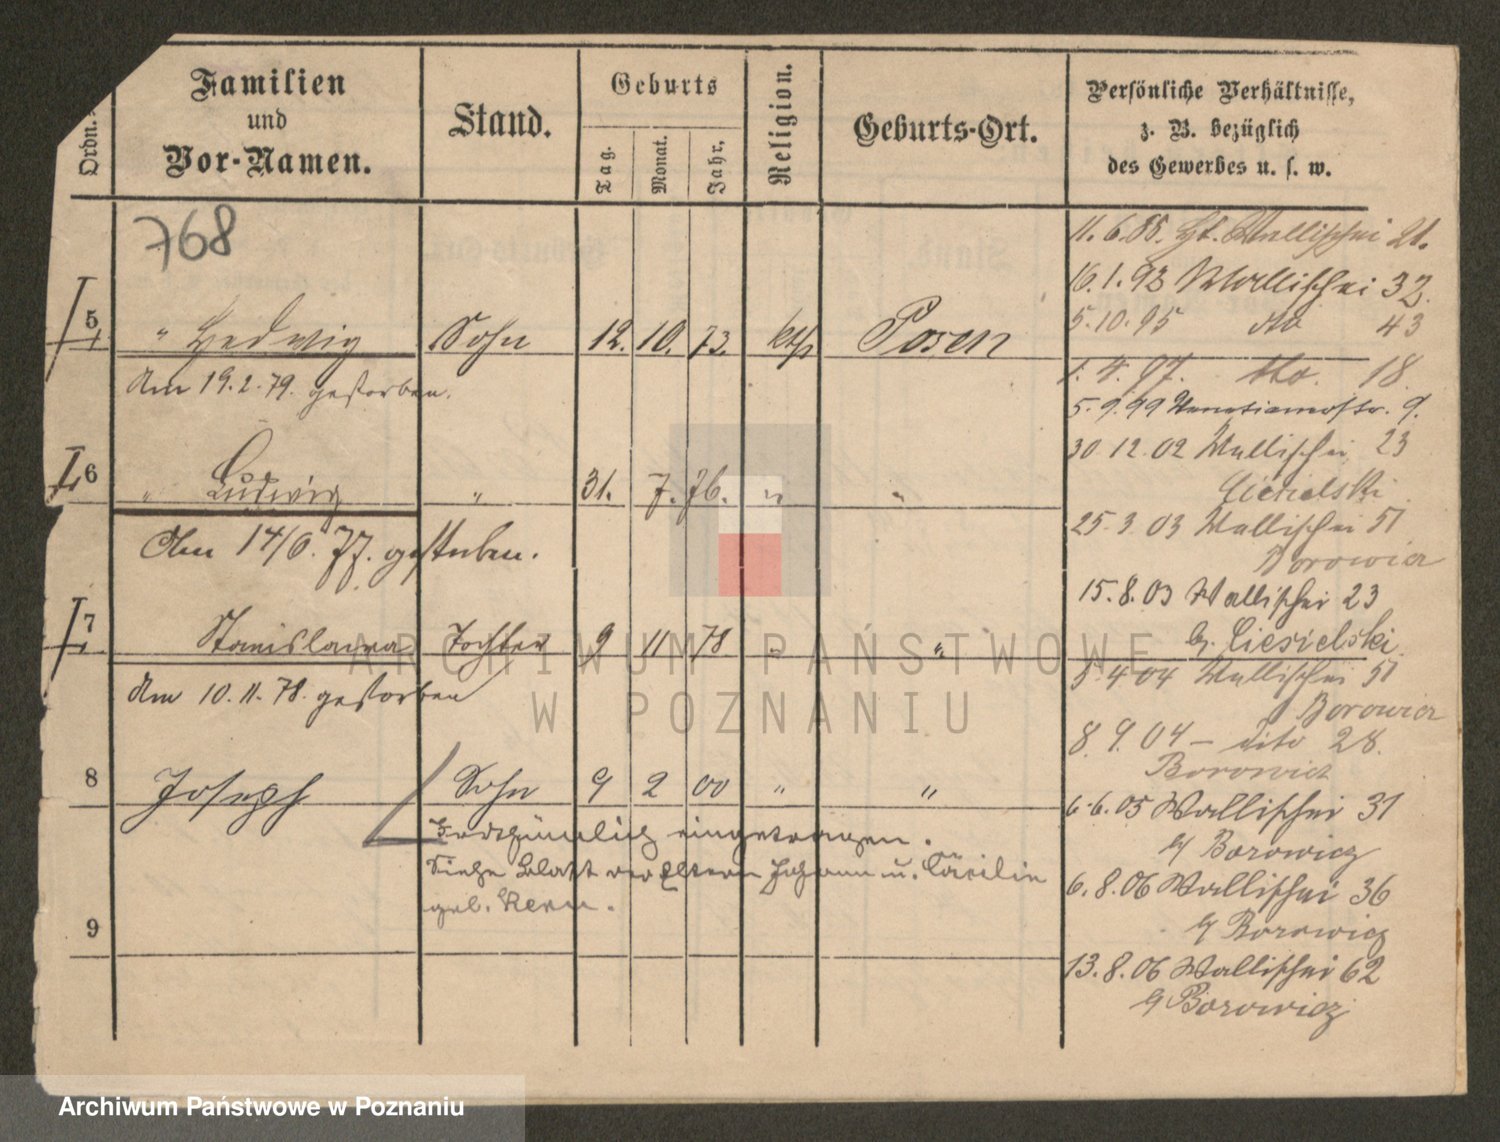 Ordn.
Familien
und
Vor-Namen.
Stand.
Geburts
Tag.
Monat.
Jahr,
Religion.
Geburts-Ort.
Persönliche Verhältnisse,
z. B. bezüglich
des Gewerbes u. s. w.
768
5 " Hedwig Sohn 12. 10. 73. kth Posen
Am 19.2.79. gestorben.
6 " Ludwig " 31. 7. 76. " "
Am 14/6. 77. gestorben.
7 Stanislawa Tochter 9 11 78 " "
Am 10.11.78. gestorben
8 Joseph Sohn 9 2 00 " "
Irrthümlich eingetragen.
Siehe Blatt der Eltern Johann u. Cäcilie
geb.
9
11.6.85. Wallischei 21.
16.1.93 Wallischei 32.
5.10.95 dto 43
1.4.97. dto. 18
5.9.99 9.
30 12.02 Wallischei 23
Ciesielski
25.3.03 Wallischei 51
Borowicz
15.8.03 Wallischei 23
Ciesielski
4 04 Wallischei 51
Borowicz
8 9.04 – dito 28.
Borowicz
6.6.05 Wallischei 31
Borowicz
6.8.06 Wallischei 36
Borowicz
13.8.06 Wallischei 62
Borowicz
ARCHIWUM PAŃSTWOWE
W POZNANIU
Archiwum Państwowe w Poznaniu